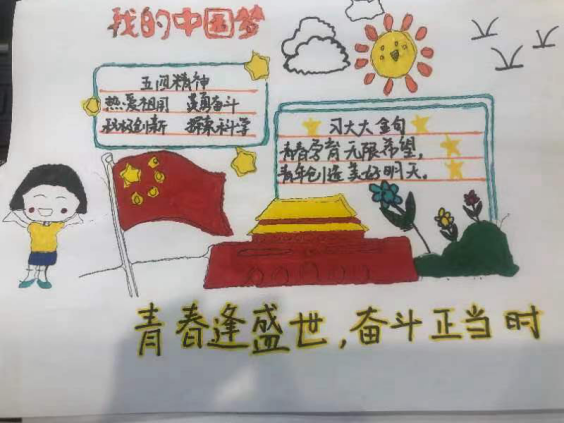 我的中国梦
五四精神
热爱祖国 英勇奋斗
积极创新 探索科学
习大大金句
青春孕育无限希望,
青年创造美好明天。
青春逢盛世,奋斗正当时